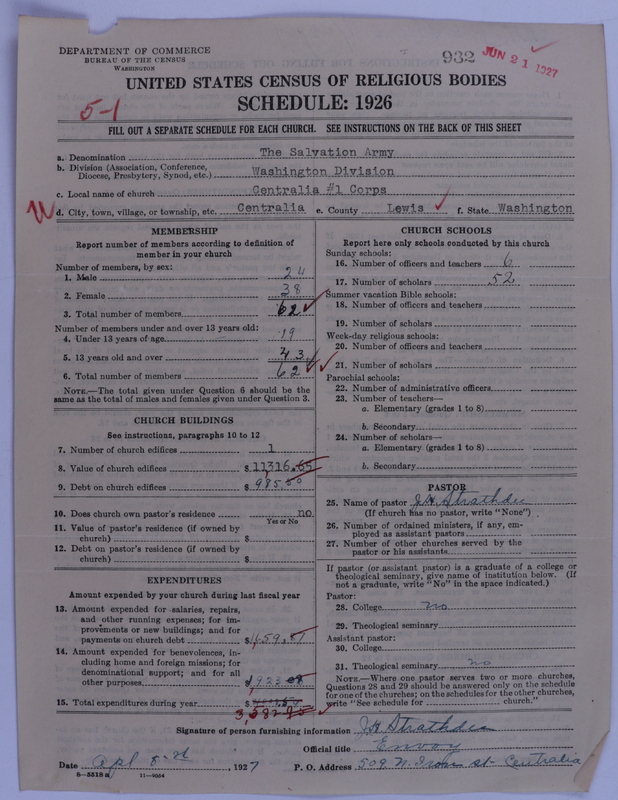 DEPARTMENT OF COMMERCE
BUREAU OF THE CENSUS
WASHINGTON
932
JUN 21 1927
UNITED STATES CENSUS OF RELIGIOUS BODIES
5-1
SCHEDULE: 1926
FILL OUT A SEPARATE SCHEDULE FOR EACH CHURCH. SEE INSTRUCTIONS ON THE BACK OF THIS SHEET
a. Denomination The Salvation Army
b. Division (Association, Conference, Diocese, Presbytery, Synod, etc.) Washington Division
c. Local name of church Centralia #1 Corps
d. City, town, village, or township, etc. Centralia e. County Lewis f. State Washington
MEMBERSHIP
Report number of members according to definition of
member in your church
Number of members, by sex:
1. Male 24
2. Female 38
3. Total number of members 62
Number of members under and over 13 years old:
4. Under 13 years of age 19
5. 13 years old and over 43
6. Total number of members 62
NOTE.—The total given under Question 6 should be the
same as the total of males and females given under Question 3.
CHURCH BUILDINGS
See instructions, paragraphs 10 to 12
7. Number of church edifices 1
8. Value of church edifices $11316.65
9. Debt on church edifices $985.00
10. Does church own pastor's residence? no
Yes or No
11. Value of pastor's residence (if owned by
church) $
12. Debt on pastor's residence (if owned by
church) $
EXPENDITURES
Amount expended by your church during last fiscal year
13. Amount expended for salaries, repairs,
and other running expenses; for im-
provements or new buildings; and for
payments on church debt $1659.87
14. Amount expended for benevolences, in-
cluding home and foreign missions; for
denominational support; and for all
other purposes $1923
15. Total expenditures during year $
CHURCH SCHOOLS
Report here only schools conducted by this church
Sunday schools:
16. Number of officers and teachers 6
17. Number of scholars 52
Summer vacation Bible schools:
18. Number of officers and teachers
19. Number of scholars
Week-day religious schools:
20. Number of officers and teachers
21. Number of scholars
Parochial schools:
22. Number of administrative officers
23. Number of teachers—
a. Elementary (grades 1 to 8)
b. Secondary
24. Number of scholars—
a. Elementary (grades 1 to 8)
b. Secondary
PASTOR
25. Name of pastor J H Strathdee
(If church has no pastor, write "None")
26. Number of ordained ministers, if any, em-
ployed as assistant pastors
27. Number of other churches served by the
pastor or his assistants
If pastor (or assistant pastor) is a graduate of a college or
theological seminary, give name of institution below. (If
not a graduate, write "No" in the space indicated.)
Pastor:
28. College no
29. Theological seminary
Assistant pastor:
30. College
31. Theological seminary no
NOTE.—Where one pastor serves two or more churches,
Questions 28 and 29 should be answered only on the schedule
for one of the churches; on the schedules for the other churches,
write "See schedule for church."
Signature of person furnishing information J H Strathdee
Official title Envoy
Date Apl 8 1927 P. O. Address 509 N. Iron St Centralia
8—5518a 11—9664